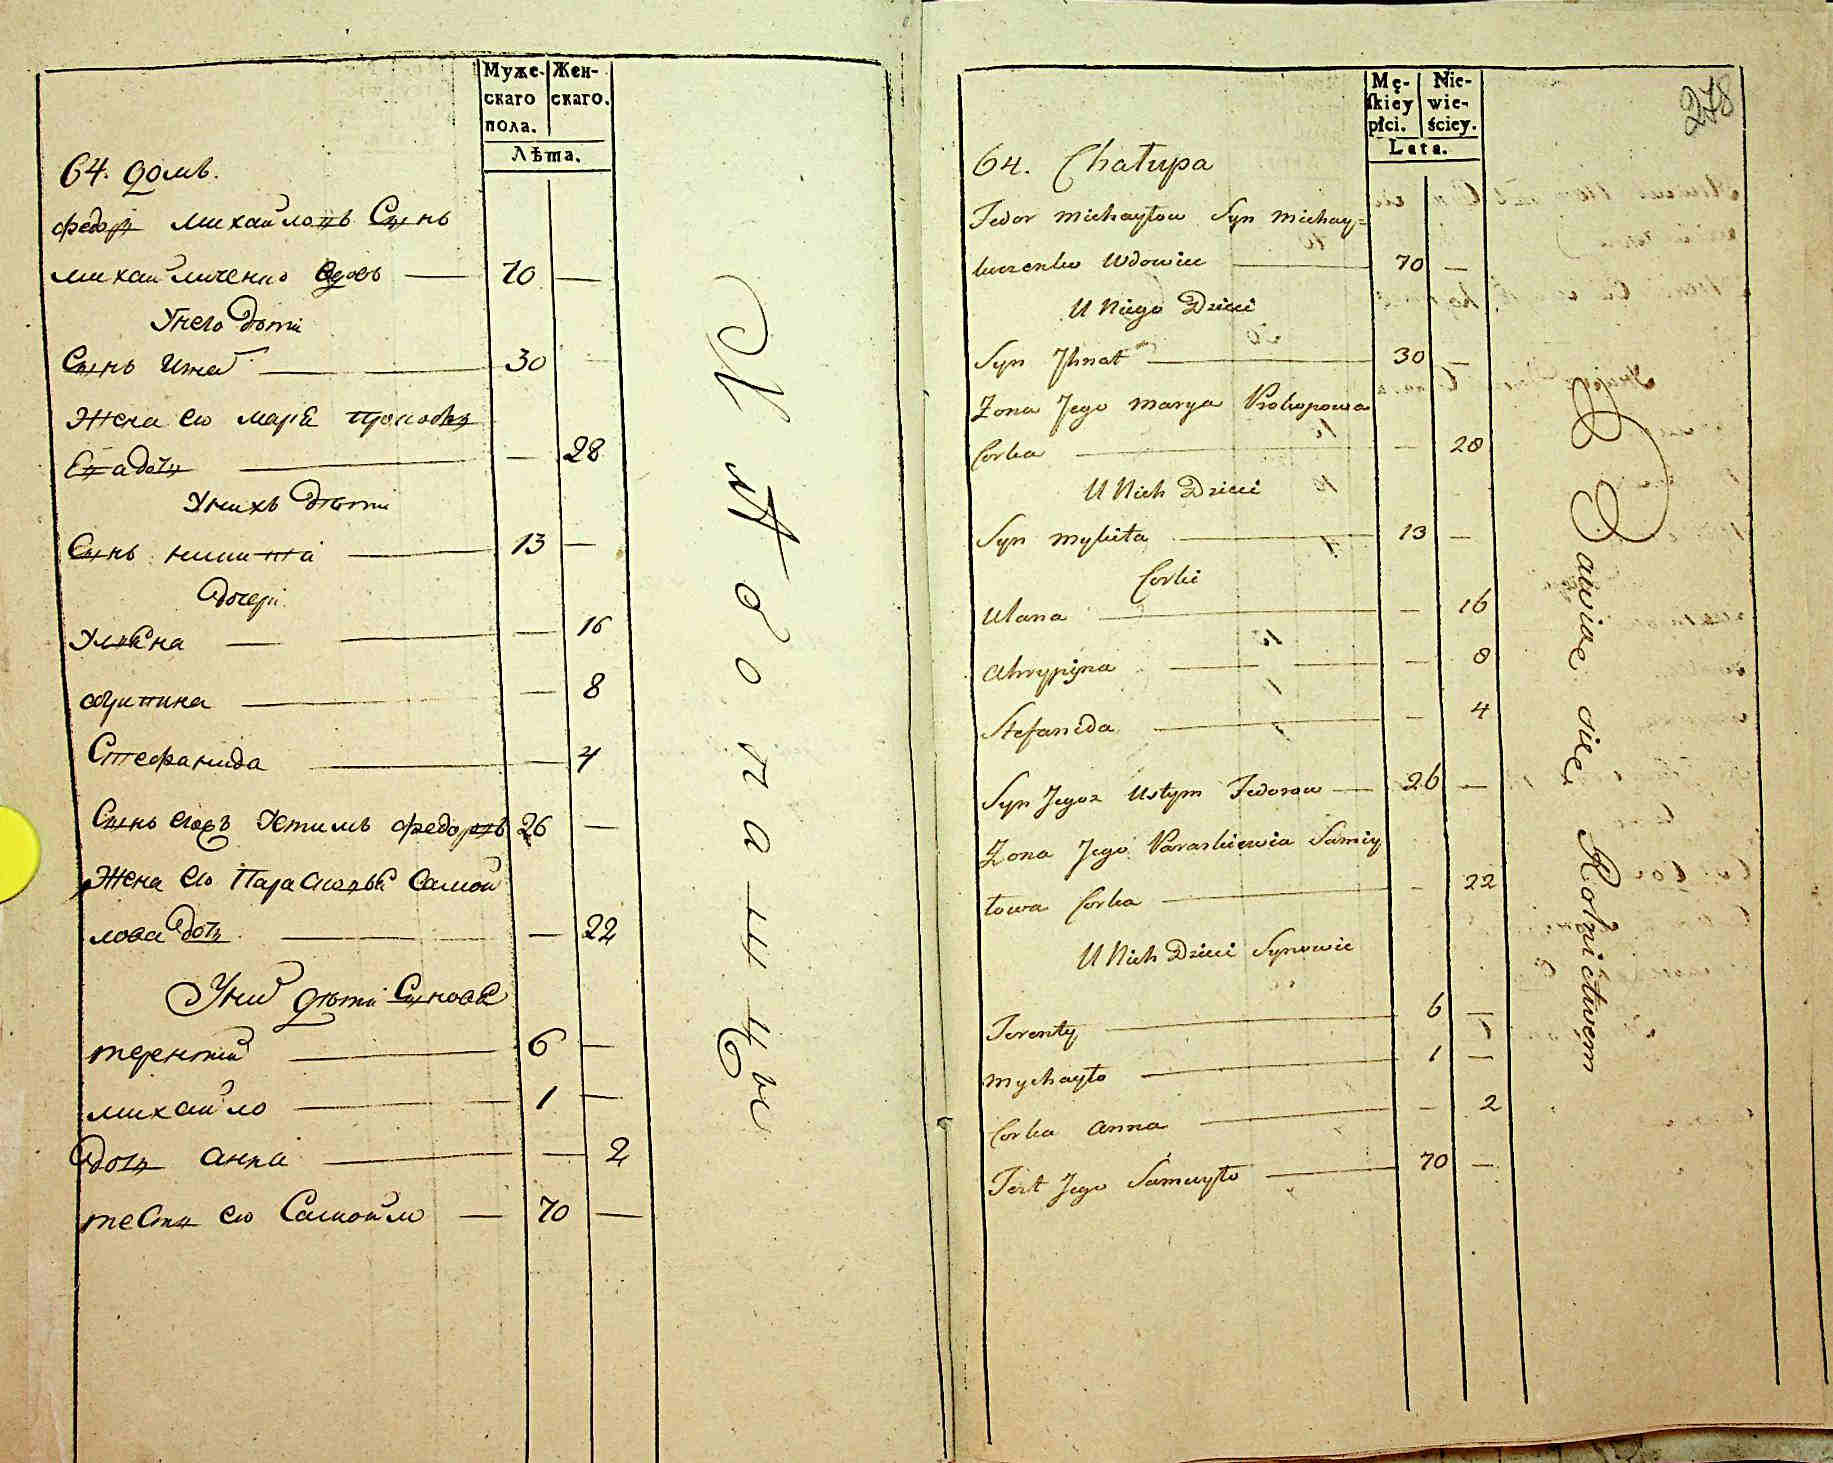 Муже-
скаго
пола.
Жен-
скаго.
Лѣта.
64. домъ.
федоръ михайловъ Сынъ
михайличенко вдовъ — 70 —
У него дѣти
Сынъ Игна — 30
Жена его марiа прокопова
дочь — — 28
У нихъ дѣти
Сынъ никита — 13 —
дочери
Улiана — — 16
агрипина — — 8
Стефанида — — 4
Сынъ егожъ Устимъ федоровъ 26 —
Жена его Парасковiа Самой
лова дочь — — 22
У них дѣти Сыновя
терентий — 6 —
михайло — 1 —
дочь анна — — 2
тесть его Самойло — 70 —
278
Mę-
skiey
płci.
Nie-
wie-
ściey.
Lata.
64. Chałupa
Fedor Michayłow Syn Michay=
luczenko Wdowiec — 70 —
U Niego Dzieci
Syn Jhnat — 30 —
Żona Jego Marya Prokopowa
Corka — — 28
U Nich Dzieci
Syn Mykita — 13 —
Corki
Ulana — — 16
Ahrypyna — — 8
Stefanida — — 4
Syn Jegoż Ustym Fedorow — 26 —
Żona Jego Paraskiewia Samiy
łowa Corka — — 22
U Nich Dzieci Synowie
Terenty — 6 —
Mychayło — 1 —
Corka Anna — — 2
Teść Jego Samuyło — 70 —
Bawiąc się Rolnictwem